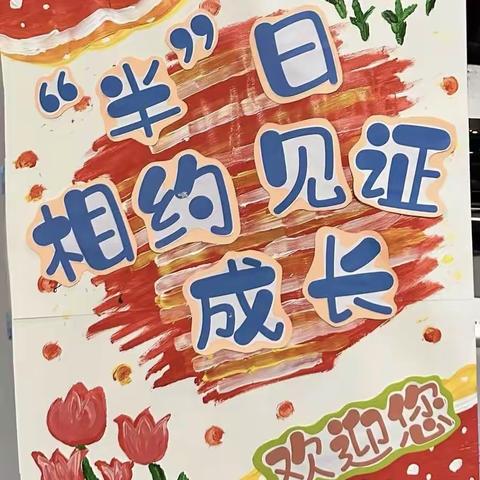 “半”日
相约见证
成长
欢迎您